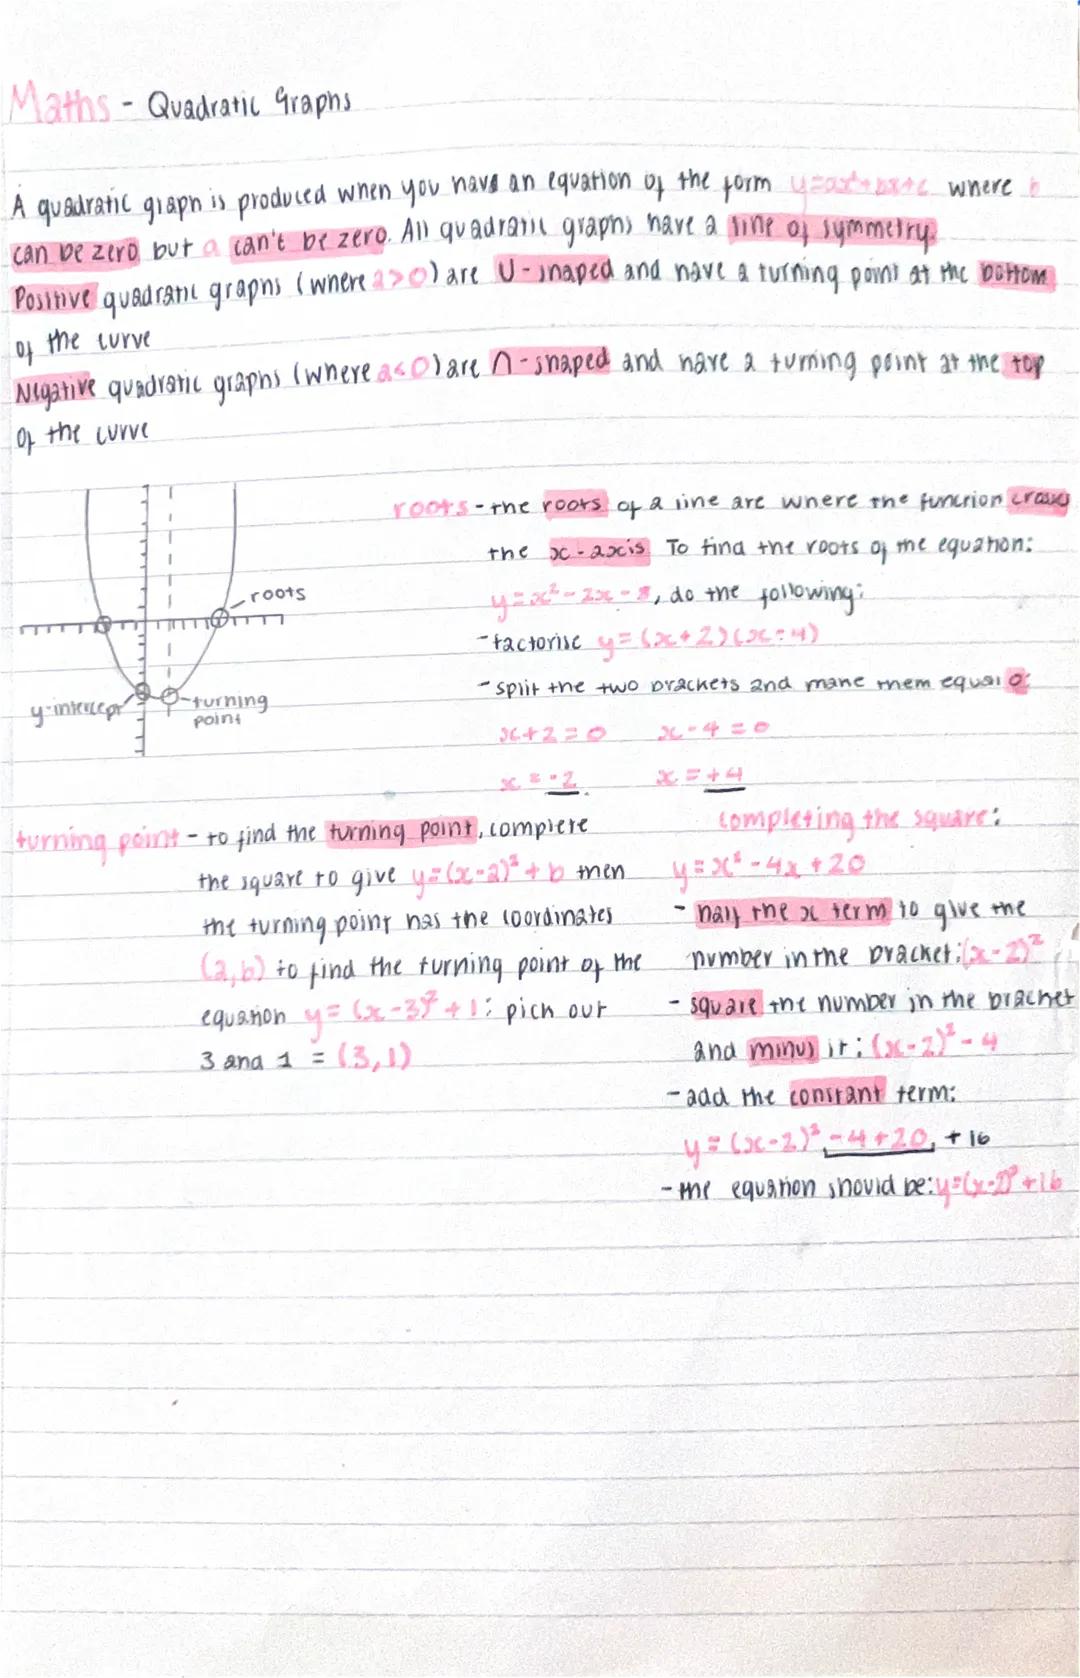 Maths - Quadratic Graphs
A quadratic graph is produced when you have an equation of the form y=ax²+bx+c where b
can be zero but a can't be zero. All quadratic graphs have a line of symmetry.
Positive quadratic graphs (where a>0) are U-shaped and have a turning point at the bottom
of the curve
Negative quadratic graphs (where a<0) are ∩-shaped and have a turning point at the top
of the curve
roots
y-intercept
turning
point
roots - the roots of a line are where the function cross
the x-axis. To find the roots of the equation:
y=x²-2x-8, do the following:
- factorise y=(x+2)(x-4)
- split the two brackets and make them equal 0:
x+2=0 x-4=0
x=-2 x=+4
turning point - to find the turning point, complete
the square to give y=(x-a)²+b then
the turning point has the coordinates
(a,b) to find the turning point of the
equation y=(x-3)²+1: pick out
3 and 1 = (3,1)
completing the square:
y=x²-4x+20
- half the x term to give the
number in the bracket:(x-2)²
- square the number in the bracket
and minus it: (x-2)²-4
- add the constant term:
y=(x-2)²-4+20, +16
- the equation should be: y=(x-2)²+16